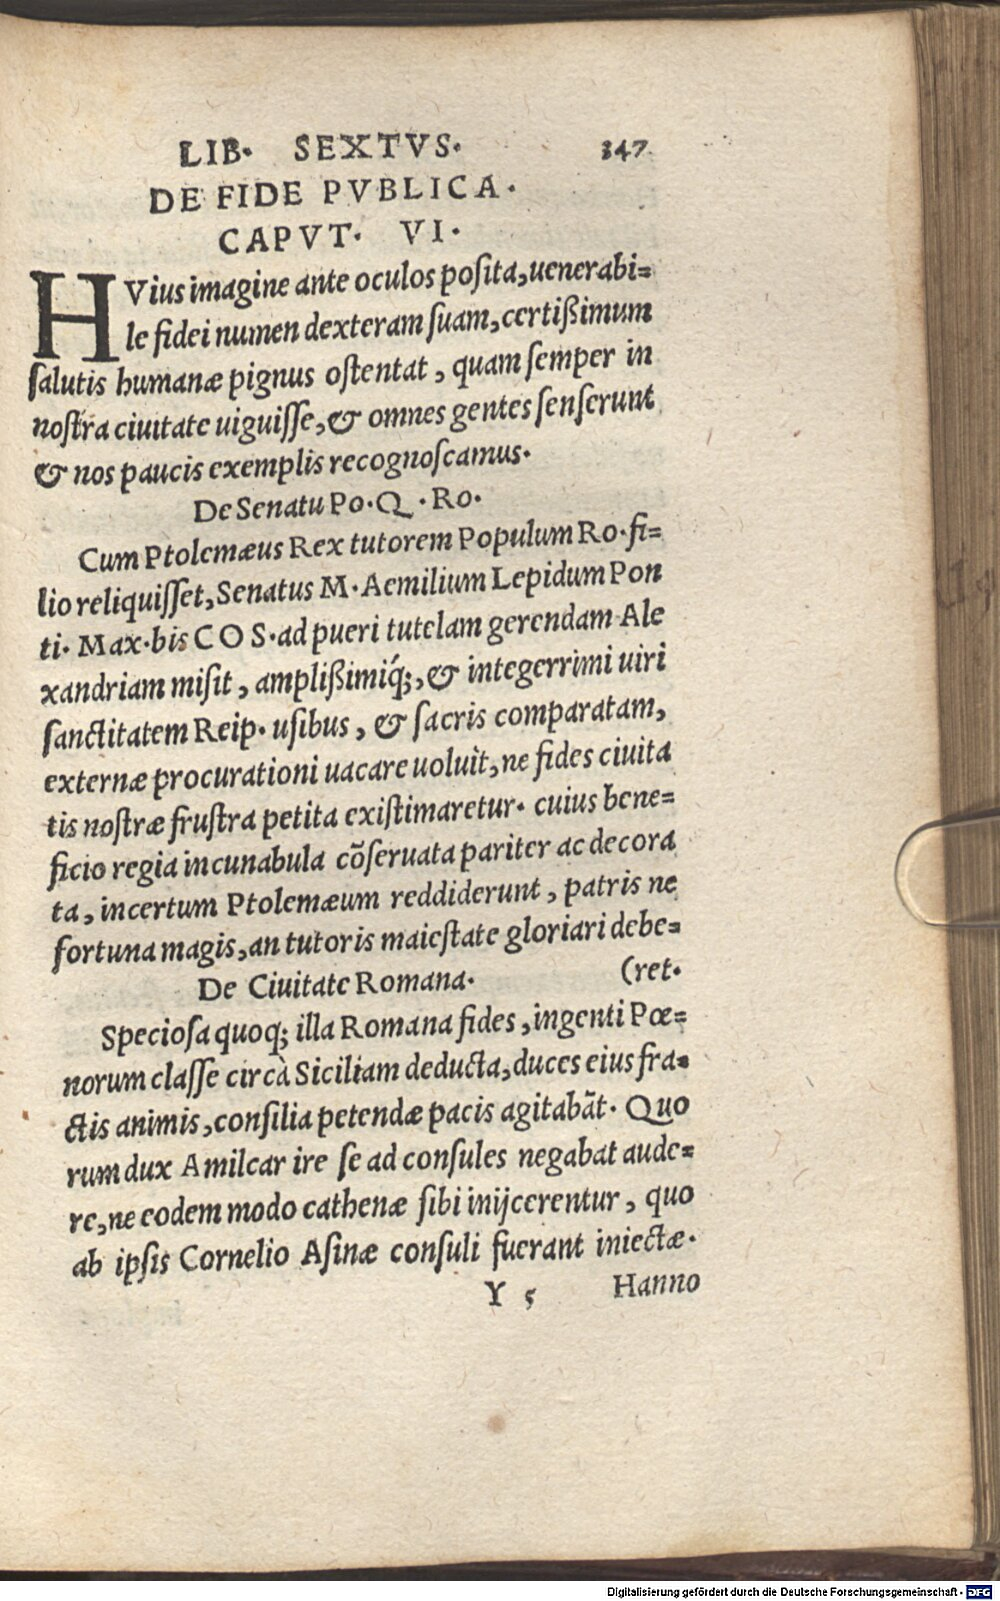 LIB. SEXTVS. 347
DE FIDE PVBLICA.
CAPVT. VI.
HVius imagine ante oculos posita, uenerabi=
le fidei numen dexteram suam, certißimum
salutis humanæ pignus ostentat, quam semper in
nostra ciuitate uiguisse, & omnes gentes senserunt
& nos paucis exemplis recognoscamus.
De Senatu Po. Q. Ro.
Cum Ptolemæus Rex tutorem Populum Ro. fi=
lio reliquisset, Senatus M. Aemilium Lepidum Pon
ti. Max. bis COS. ad pueri tutelam gerendam Ale
xandriam misit, amplißimiq́;, & integerrimi uiri
sanctitatem Reip. usibus, & sacris comparatam,
externæ procurationi uacare uoluit, ne fides ciuita
tis nostræ frustra petita existimaretur. cuius bene=
ficio regia incunabula cõseruata pariter ac decora
ta, incertum Ptolemæum reddiderunt, patris ne
fortuna magis, an tutoris maiestate gloriari debe=
De Ciuitate Romana. (ret.
Speciosa quoq; illa Romana fides, ingenti Pœ=
norum classe circà Siciliam deducta, duces eius fra=
ctis animis, consilia petendæ pacis agitabãt. Quo
rum dux Amilcar ire se ad consules negabat aude=
re, ne eodem modo cathenæ sibi inijcerentur, quo
ab ipsis Cornelio Asinæ consuli fuerant iniectæ.
Y 5 Hanno
Digitalisierung gefördert durch die Deutsche Forschungsgemeinschaft - DFG